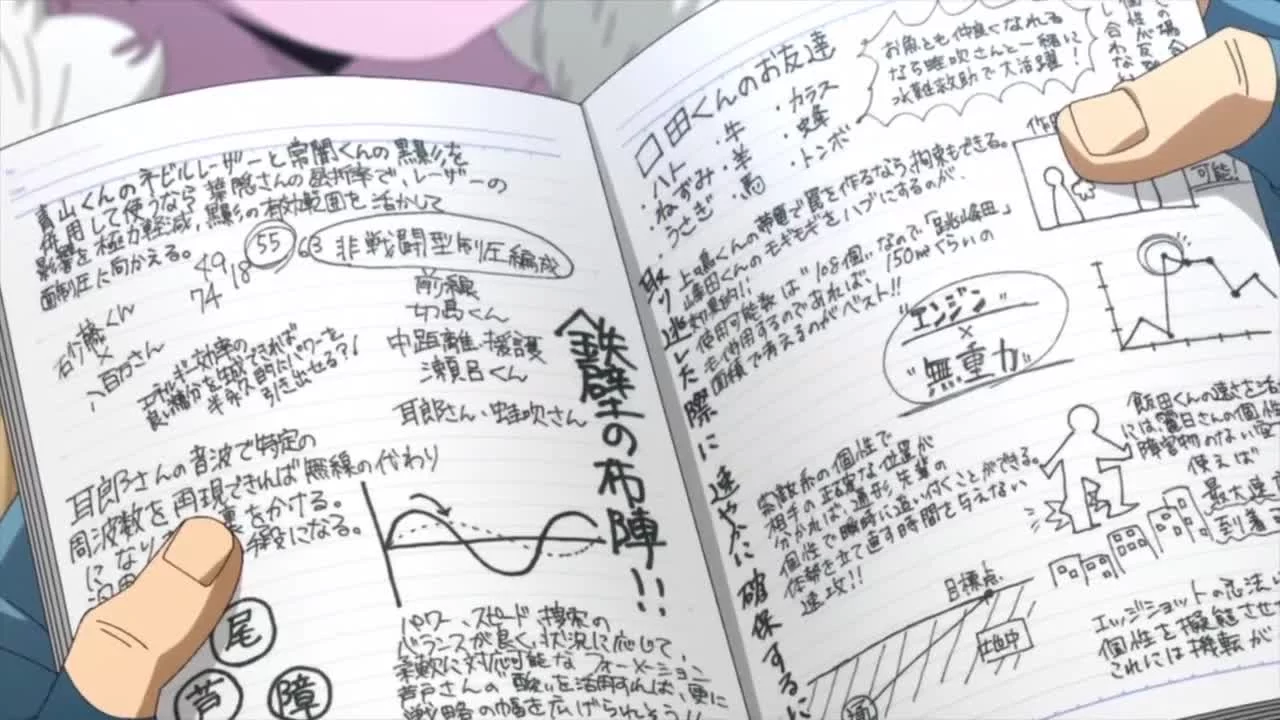 青山くんのネビルレーザーと常闇くんの黒影を
併用して使うなら葉隠さんの屈折率で、レーザーの
影響を極力軽減、黒影の有効範囲を活かして
面制圧に向かえる。
49 18 55 63
74
非戦闘型制圧編成
前線
切島くん
中距離・援護
瀬呂くん
耳郎さん・蛙吹さん
砂藤くん
×
八百万さん
エネルギー効率の
良い糖分を生成できれば
半永久的にパワーを
引き出せる?!
鉄壁の布陣!!
耳郎さんの音波で特定の
周波数を再現できれば無線の代わり
になり
をかける。
役になる。
尾
芦
障
パワー、スピード、捜索の
バランスが良く、状況に応じて、
柔軟に対応可能なフォーメーション
芦戸さんの酸を活用すれば、更に
戦略の幅を広げられそう!!
口田くんのお友達
・ハト
・ねずみ
・うさぎ
・牛
・羊
・馬
・カラス
・蜂
・トンボ
お魚とも仲良くなれる
なら蛙吹さんと一緒に
水難救助で大活躍!
上鳴くんの帯電で罠を作るなら、拘束もできる。
峰田くんのモギモギをハブにするのが、
効果的!!
使用可能数は"108個"なので「自兆峰田」
も使用するのであれば、150㎡ぐらいの
面積で考えるのがベスト!!
可能!
取り逃した際に速やかに確保するに
"エンジン"
×
"無重力"
索敵系の個性で
相手の正確な位置が
分かれば、遁形、先輩の
個性で瞬時に追い付くことができる。
体勢を立て直す時間を与えない
速攻!!
飯田くんの速さを活
には、麗日さんの個性
障害物のない空
使えば
最大速
到着
目標点
地中
エッジショットの忍法
個性を擬態させ
これには機転が